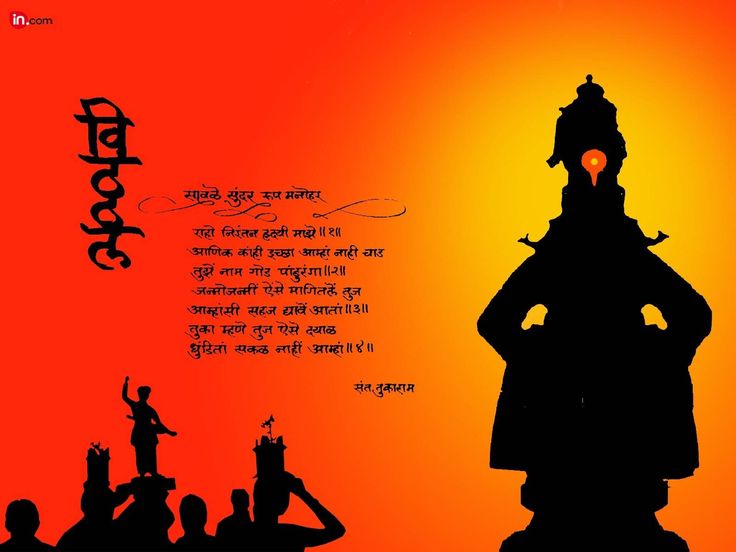 in.com
विठ्ठल
सावळे सुंदर रूप मनोहर
राहो निरंतन हृदयी माझे॥१॥
आणिक कांही इच्छा आम्हां नाही चाड
तुझें नाम गोड पांडुरंगा॥२॥
जन्मोजन्मीं ऐसें मागितलें तुज
आम्हांसी सहज द्यावें आतां॥३॥
तुका म्हणे तुज ऐसे दयाळ
धुंडितां सकळ नाहीं आम्हां॥४॥
संत तुकाराम